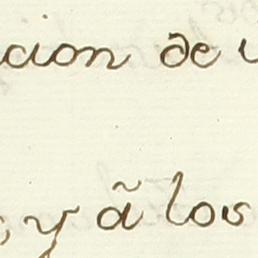 cion de
y ã los